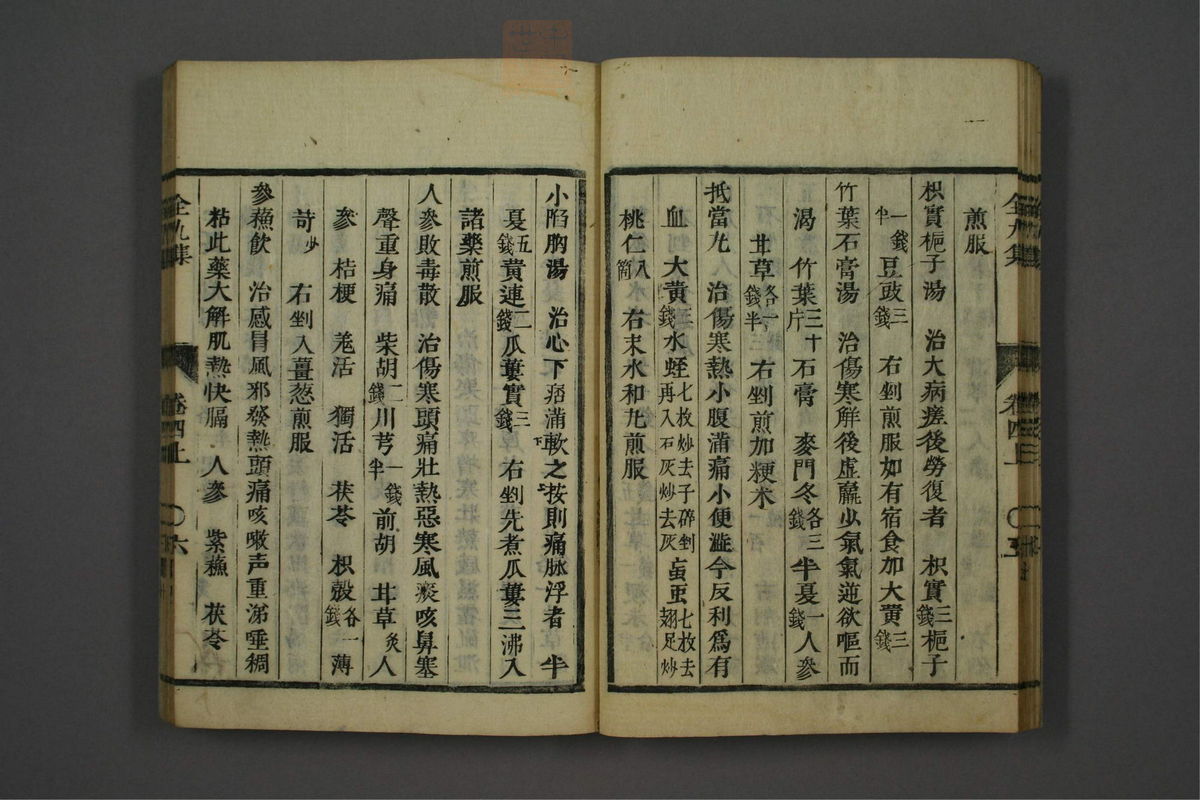 煎服
枳實梔子湯　治大病瘥後勞復者　枳實三錢梔子
一錢半　豆豉三錢　右剉煎服如有宿食加大黃三錢
竹葉石膏湯　治傷寒解後虛羸少氣氣逆欲嘔而
渴　竹葉三十片　石膏　麥門冬各三錢　半夏一錢人參
甘草各一錢半　右剉煎加粳米
抵當丸　治傷寒熱小腹滿痛小便澁今反利爲有
血　大黃三錢水蛭七枚炒去子碎剉再入石灰炒去灰　䖟䖝七枚去翅足炒
桃仁八箇　右末水和丸煎服
全九集　卷四上
小陷胸湯　治心下痞滿軟之按則痛脉浮者　半
夏五錢黃連二錢瓜蔞實三錢　右剉先煮瓜蔞三沸入
諸藥煎服
人參敗毒散　治傷寒頭痛壯熱惡寒風痰咳鼻塞
聲重身痛　柴胡二錢川芎一錢半　前胡　甘草炙人
參　桔梗　羗活　獨活　茯苓　枳殼各一錢　薄
苛少　右剉入薑葱煎服
參蘓飲　治感冒風邪發熱頭痛咳嗽声重涕唾稠
粘此藥大解肌熱快膈　人參　紫蘓　茯苓
全九集　卷四上　六